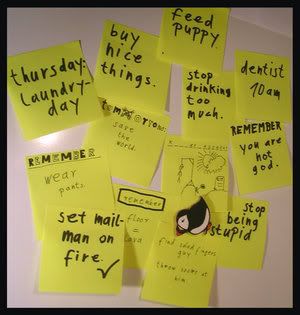 feed
puppy.
buy
nice
things.
thursday:
laundry-
day
dentist
10am
stop
drinking
too
much.
save
the
world.
REMEMBER
you are
not
god.
REMEMBER
wear
pants.
remember
floor
=
lava
set mail-
man on
fire.
stop
being
stupid
find
guy
throw
at
him.